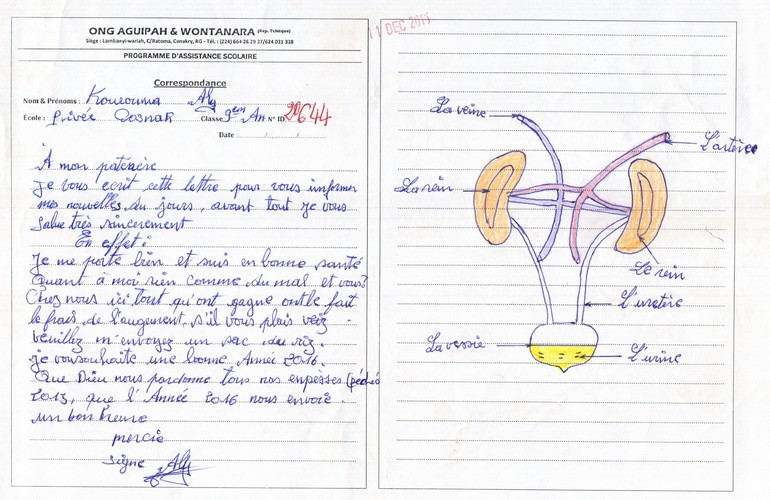 ONG AGUIPAH & WONTANARA (Rep. Tchèque)
Siège : Lambanyi-wariah, C/Ratoma, Conakry, RG - Tél. : (224) 664 26 29 37/624 031 338
PROGRAMME D'ASSISTANCE SCOLAIRE
Correspondance
Nom & Prénoms : Kourouma Aly
École : privée Classe 9em An N° ID 20644
Date / /
À mon patère
Je vous ecrit cette lettre pour vous informer
mes nouvelles du jours, avant tout je vous
salue très sincerement
En effet :
Je me porte bien et suis en bonne santé
Quant à moi rien comme du mal et vous?
Chez nous ici tout qu'ont gagne ont le fait
le frais de l'augement, s'il vous plais veiz
veuillez m'envoyez un sac du riz.
je voussouhaite une bonne Année 2016.
Que Dieu nous pardonne tous nos (péchés
que l'Année 2016 nous envoie
un bonheure
mercie
signe Aly
11 DEC 2015
La veine
L'artère
La rein
Le rein
L'uretère
La vessie
L'urine